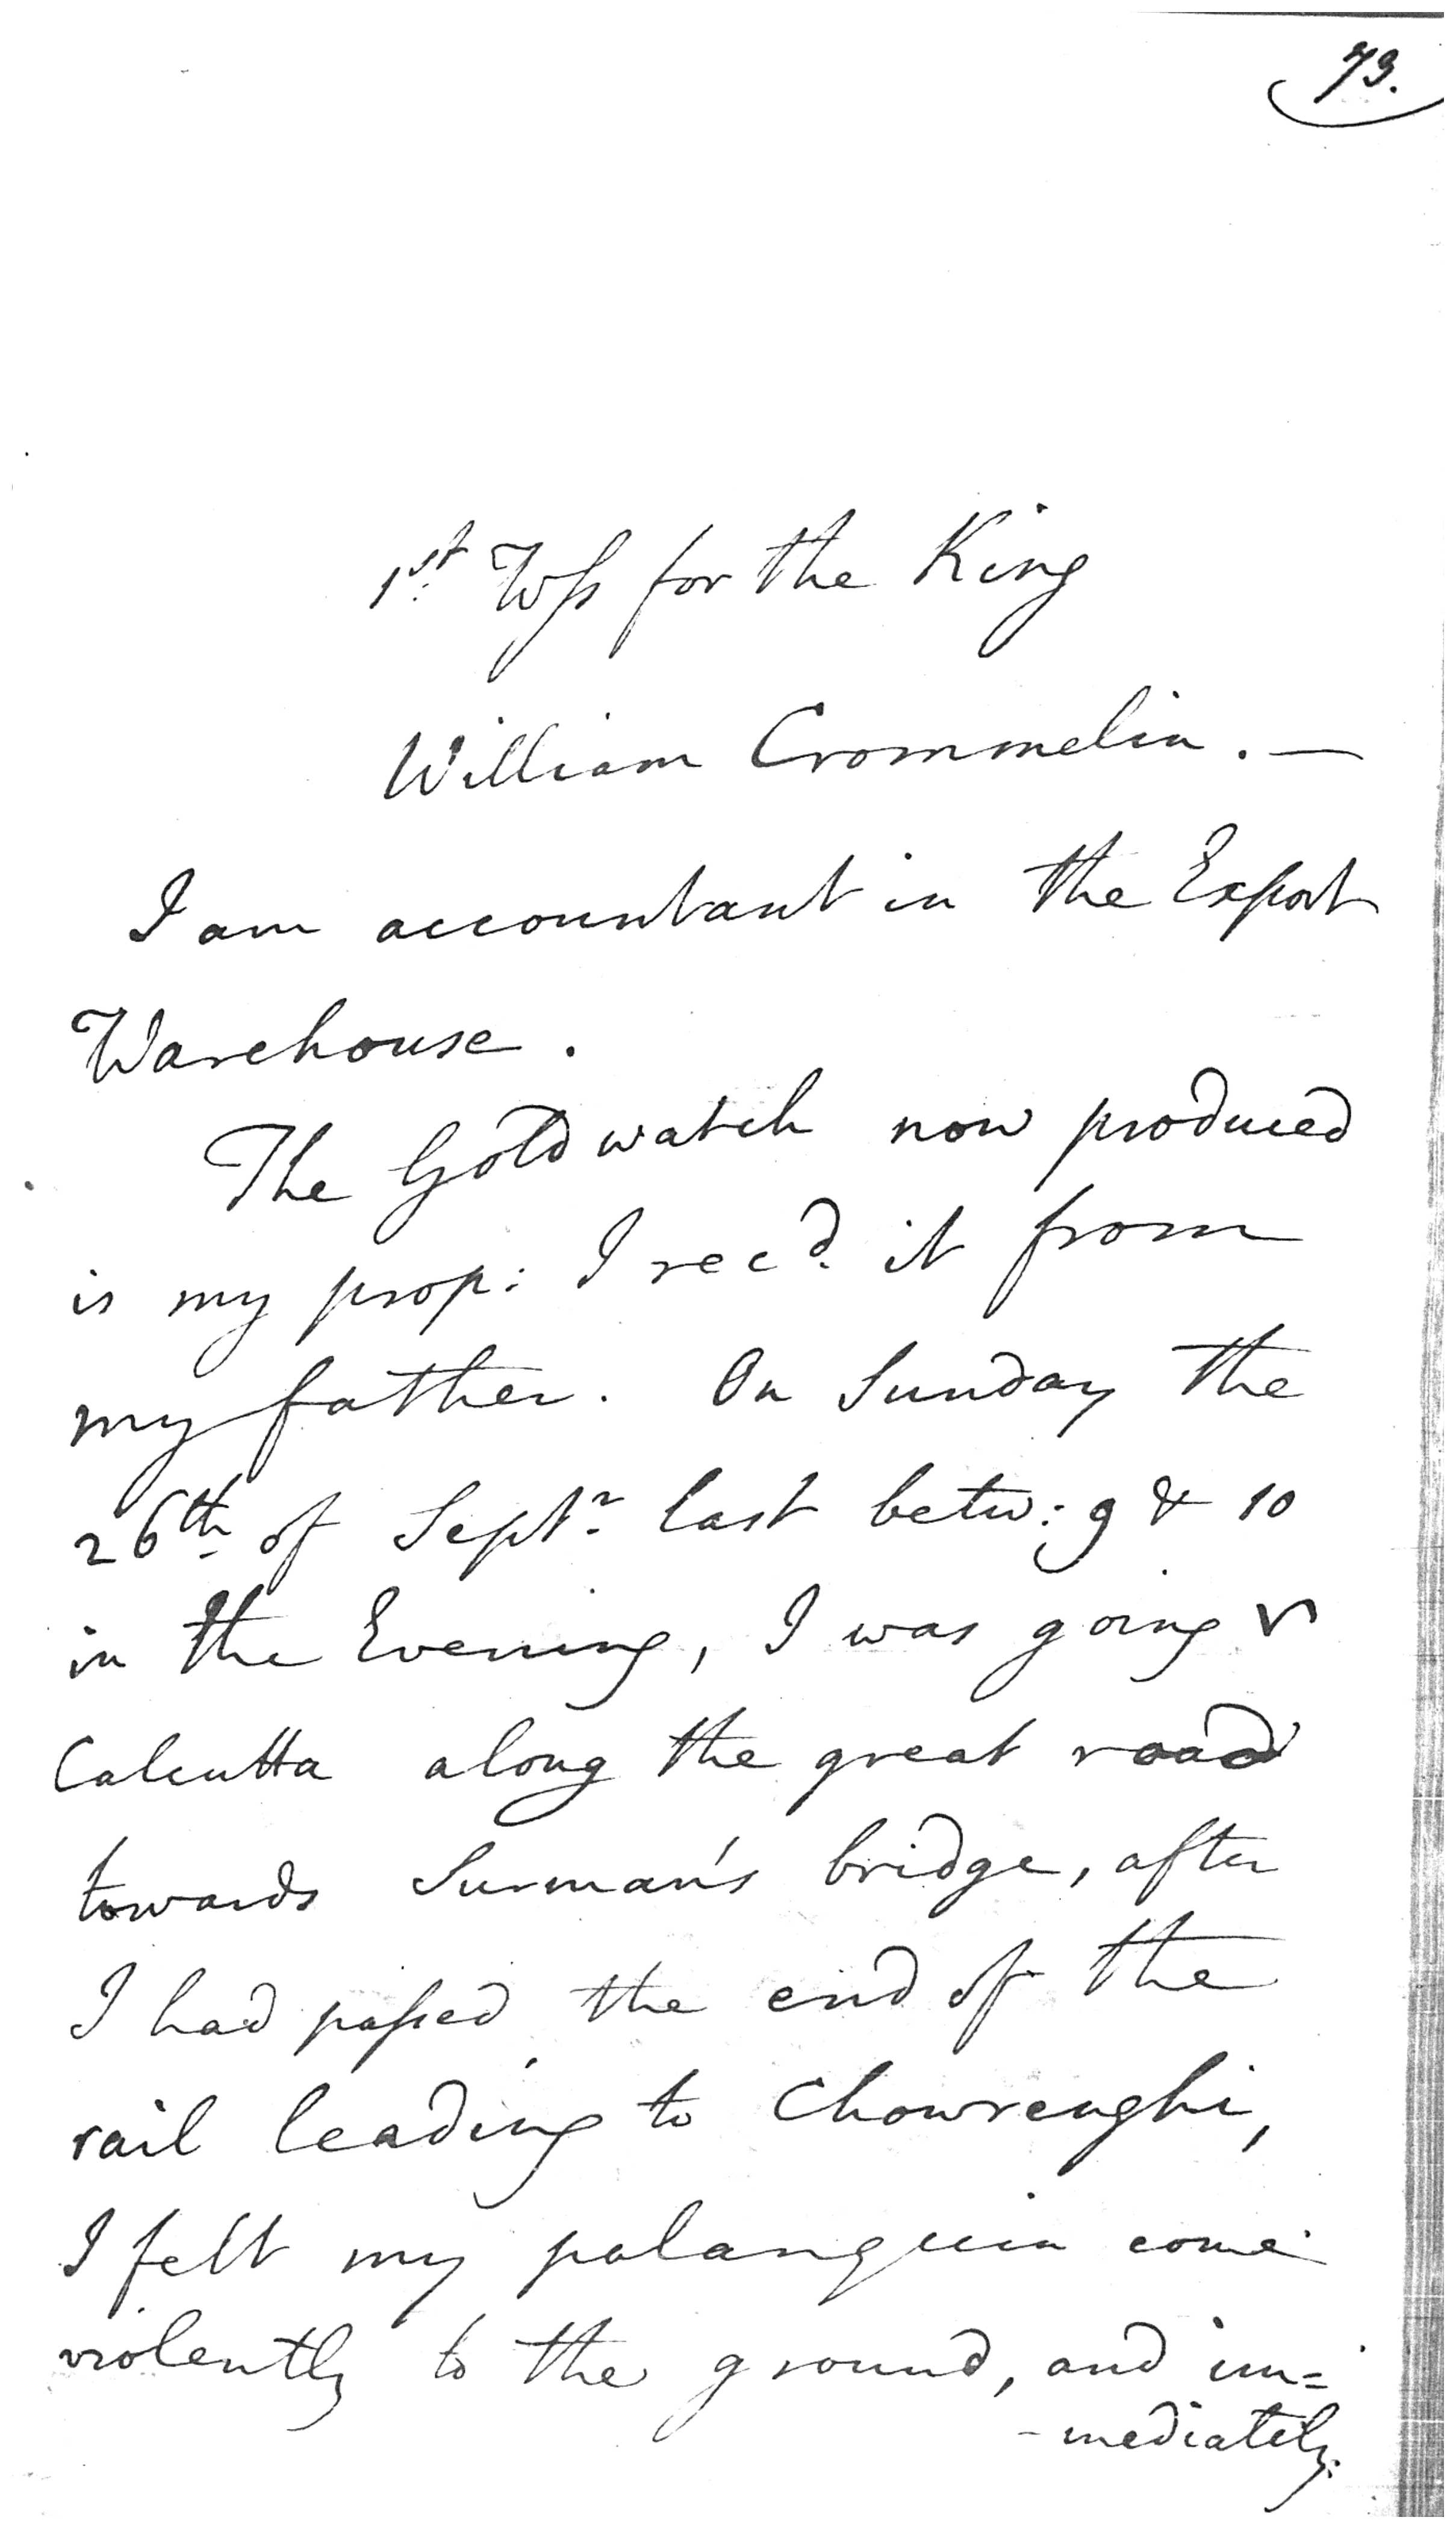 73.
1st Wss for the King
William Crommelin. —
I am accountant in the Export
Warehouse.
The Gold watch now produced
is my prop: I recd. it from
my father. On Sunday the
26th of Septr. last betw: 9 & 10
in the Evening, I was going
Calcutta along the great road
towards Surman's bridge, after
I had passed the end of the
rail leading to Chowrenghi,
I felt my palanquin come
violently to the ground, and im=
-mediately.